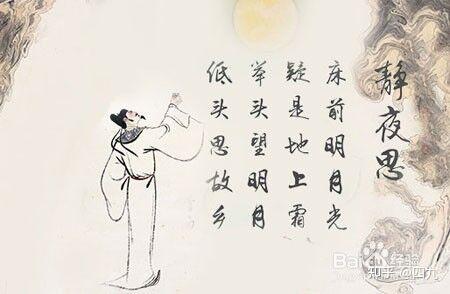 静夜思
床前明月光
疑是地上霜
举头望明月
低头思故乡
Bai 经验
知乎 @四九